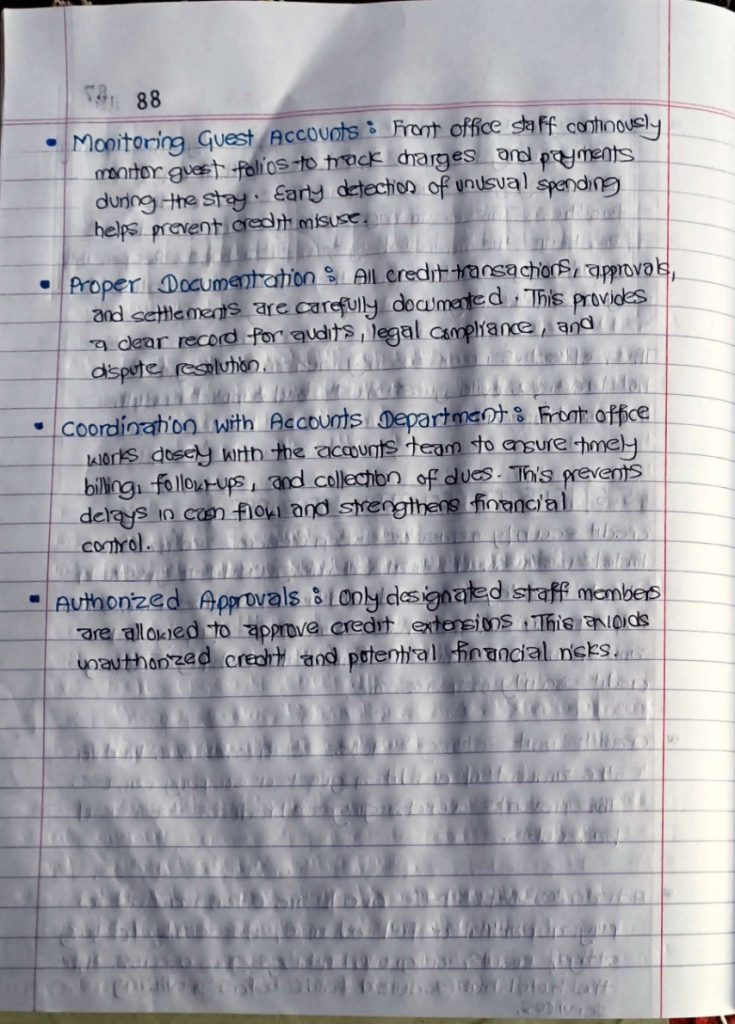 88
• Monitoring Guest Accounts : Front office staff continously
monitor guest folios to track charges and payments
during the stay. Early detection of unusual spending
helps prevent credit misuse.
• Proper Documentation : All credit transactions, approvals,
and settlements are carefully documented. This provides
a clear record for audits, legal compliance, and
dispute resolution.
• Coordination with Accounts Department : Front office
works closely with the accounts team to ensure timely
billing, follow-ups, and collection of dues. This prevents
delays in cash flow and strengthens financial
control.
• Authorized Approvals : Only designated staff members
are allowed to approve credit extensions. This avoids
unauthorized credit and potential financial risks.